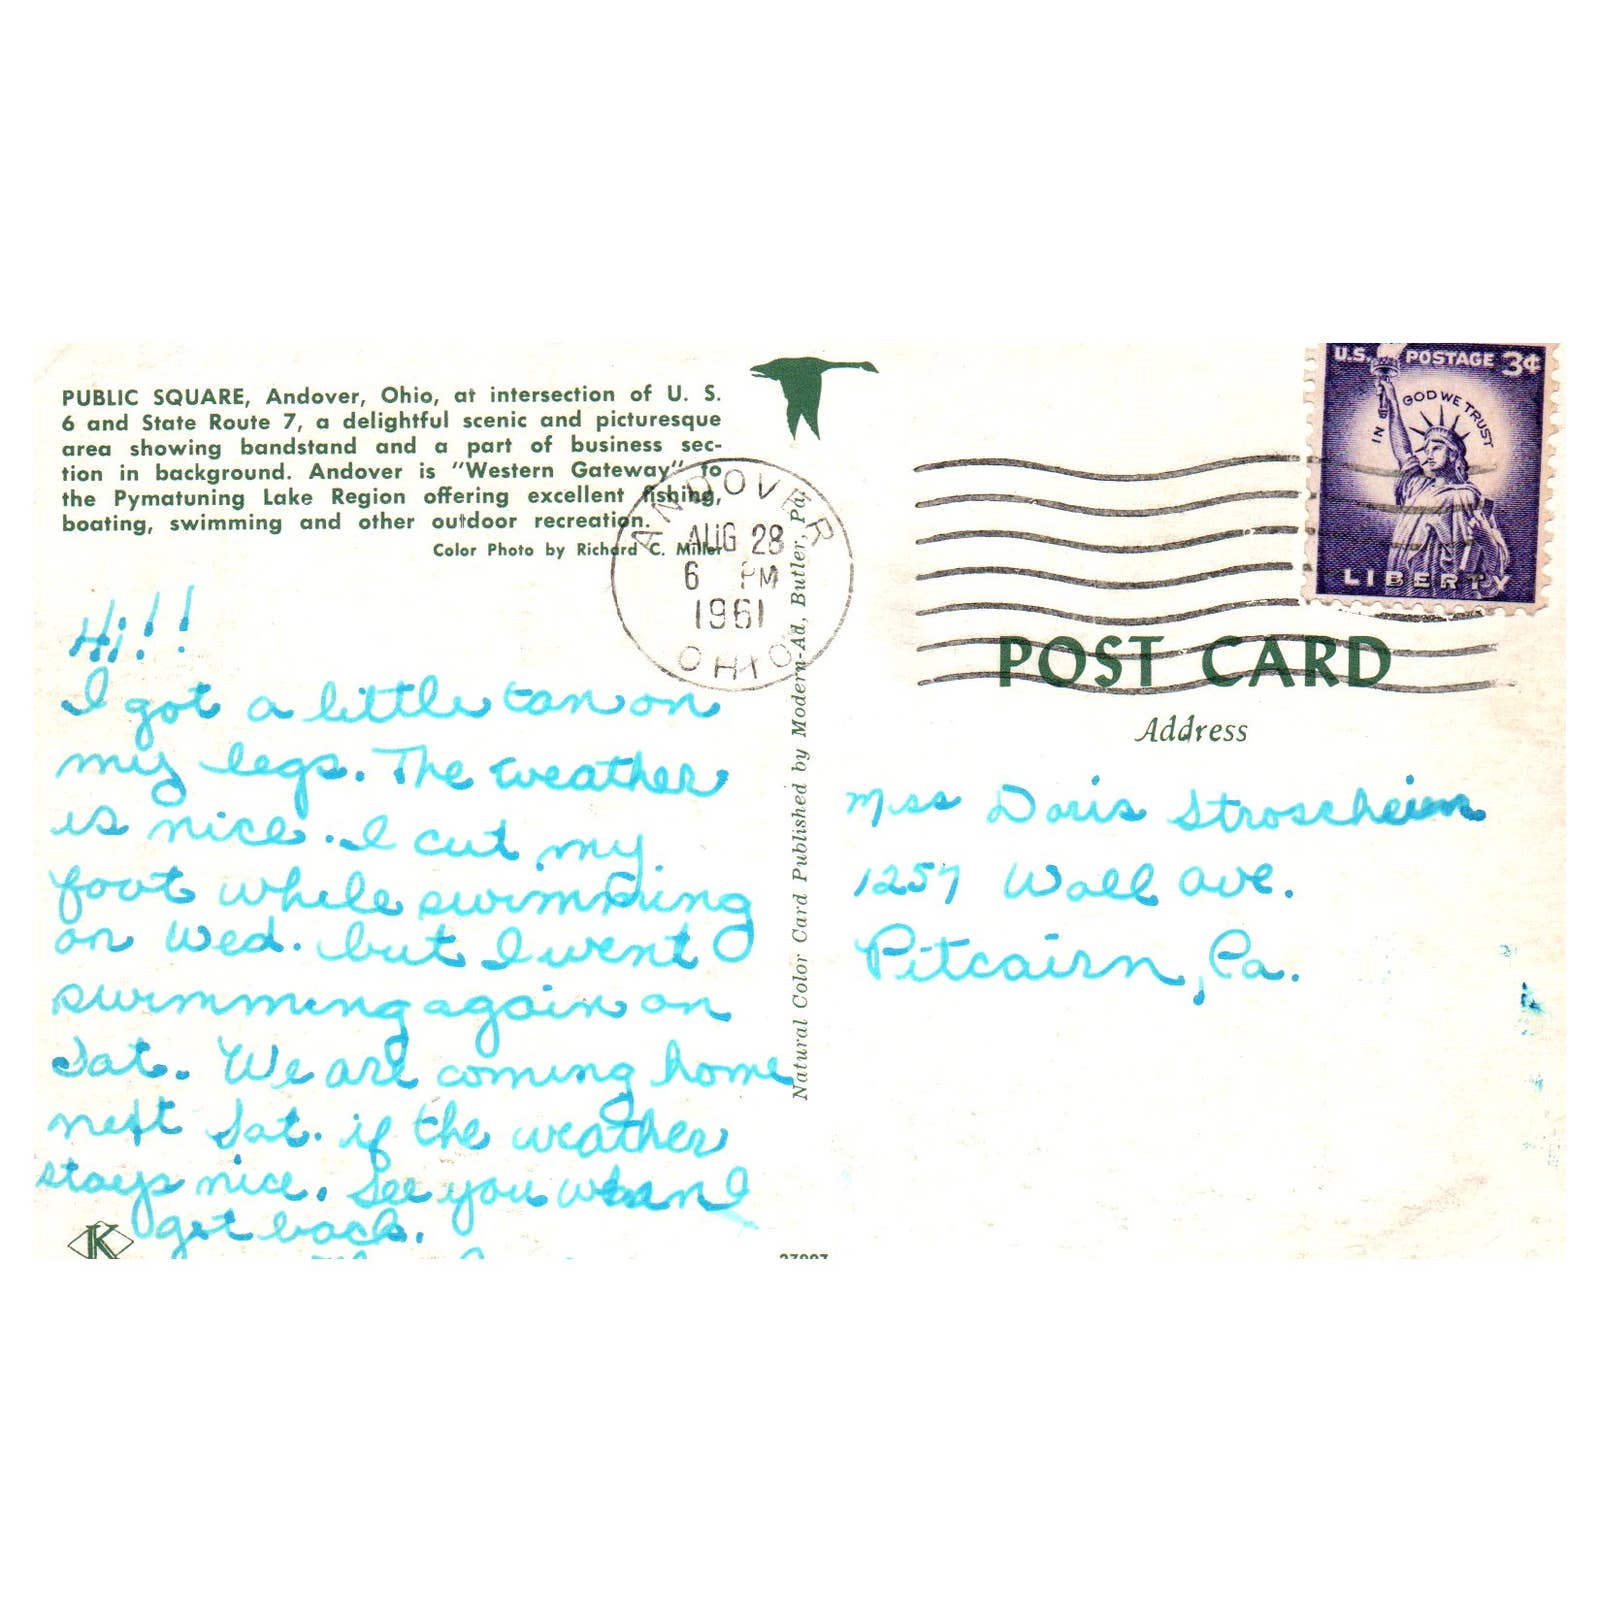 PUBLIC SQUARE, Andover, Ohio, at intersection of U. S.
6 and State Route 7, a delightful scenic and picturesque
area showing bandstand and a part of business sec-
tion in background. Andover is "Western Gateway" to
the Pymatuning Lake Region offering excellent fishing,
boating, swimming and other outdoor recreation.
Color Photo by Richard C. Miller
Hi!!
I got a little tan on
my legs. The weather
is nice. I cut my
foot while swimming
on Wed. but I went
swimming again on
Sat. We are coming home
next Sat. if the weather
stays nice. See you when I
get back.
K
Natural Color Card Published by Modern-Ad, Butler, Pa.
ANDOVER
AUG 28
6 PM
1961
OHIO
U.S. POSTAGE 3¢
IN GOD WE TRUST
LIBERTY
POST CARD
Address
Miss Doris Stroschein
1257 Wall Ave.
Pitcairn, Pa.